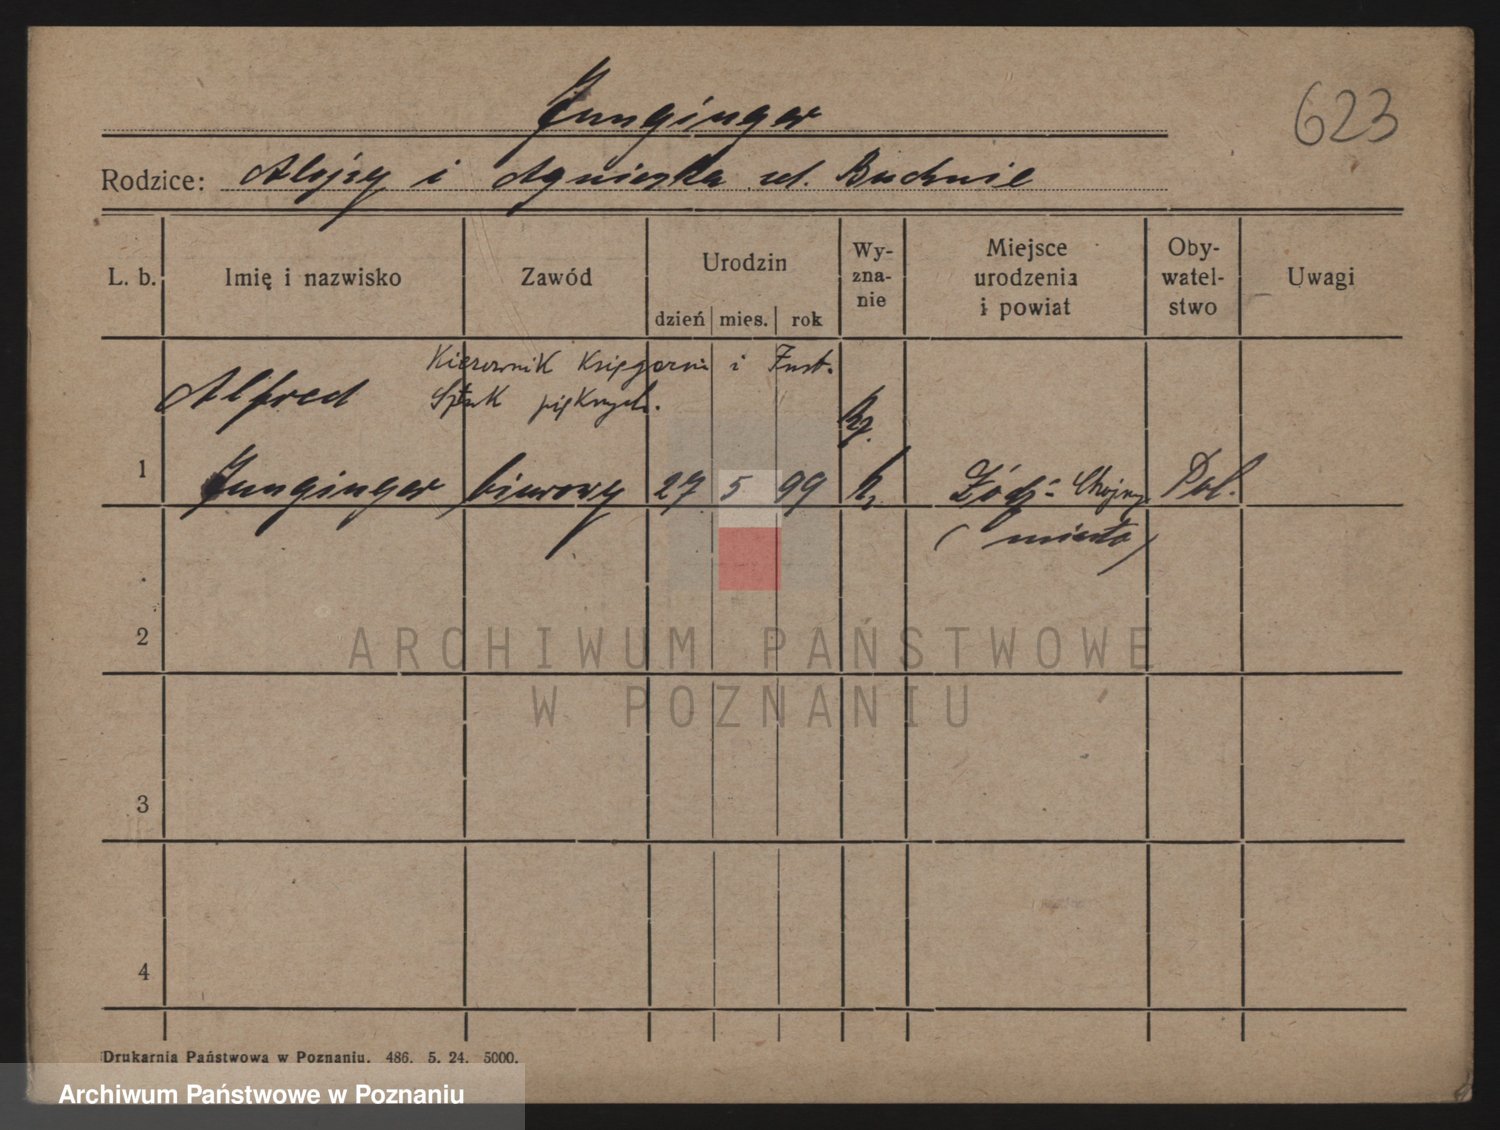 Junginger
623
Rodzice: Alojzy i Agnieszka ud. Buchnie
L. b.
Imię i nazwisko
Zawód
Urodzin
dzień mies. rok
Wy-
zna-
nie
Miejsce
urodzenia
i powiat
Oby-
watel-
stwo
Uwagi
Kierownik Księgarni i Inst.
Alfred Sztuk pięknych.
1 Junginger biurowy 27 5 99 Łódź - Chojny Pol.
(miasto)
2
ARCHIWUM PAŃSTWOWE
W POZNANIU
3
4
Drukarnia Państwowa w Poznaniu. 486. 5. 24. 5000.
Archiwum Państwowe w Poznaniu